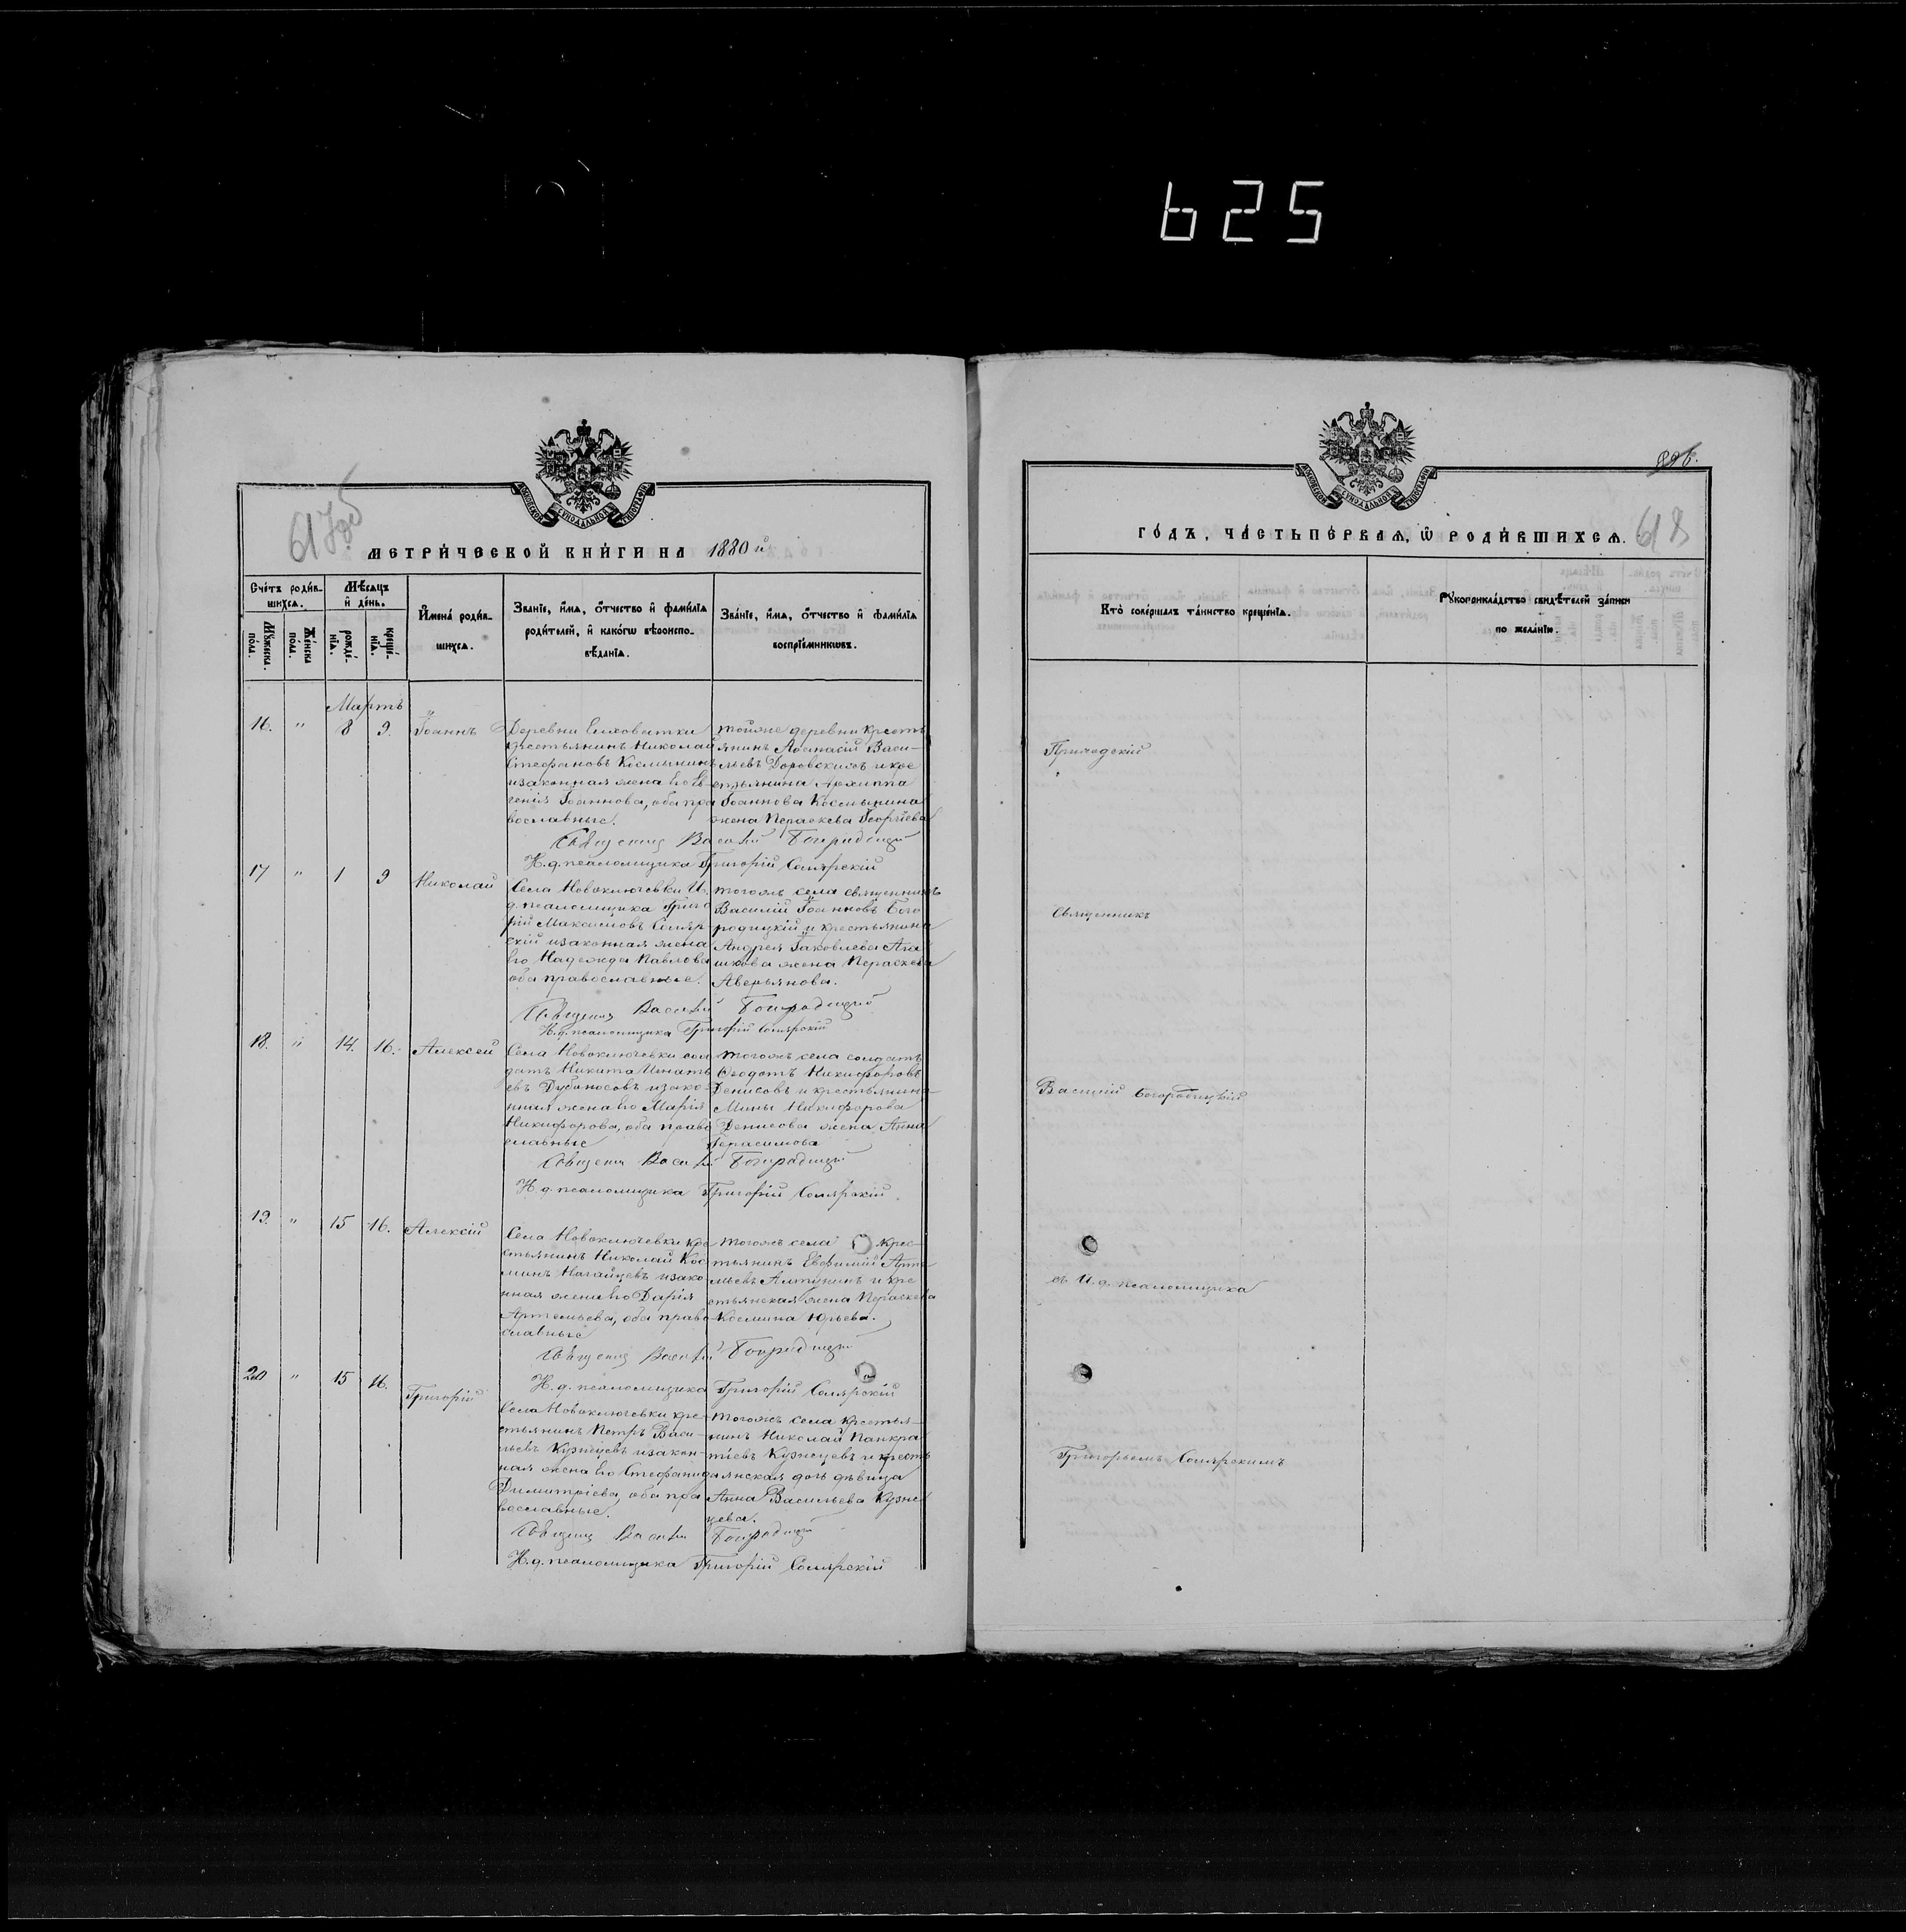 625
617об
МОСКОВСКОЙ СѴНОДАЛЬНОЙ ТИПОГРАФІИ
МЕТРИ́ЧЕСКОЙ КНИ́ГИ НА 1880 й
Сче́тъ роди́в-
шихсѧ.
Мѣ́сѧцъ
и҆ де́нь.
И҆мена̀ роди́в-
шихсѧ.
Зва́нїе, и҆́мѧ, ѻ҆́тчество и҆ фами́лїѧ
роди́телей, и҆ како́гѡ вѣроиспо-
вѣ́данїѧ.
Зва́нїе, и҆́мѧ, ѻ҆́тчество и҆ фами́лїѧ
воспрїе́мникѡвъ.
Мꙋ́жеска
по́ла.
Же́нска
по́ла.
рожде́-
нїѧ.
креще́-
нїѧ.
Мартъ
16. " 8 9. Іоаннъ
Деревни Елховатки
крестьянинъ Николай
Стефановъ Космынинъ
и законная жена его Ев-
генія Іоаннова, оба пра
вославные.
тойже деревни кресть
янинъ Аѳанасій Васи-
льевъ Доровскихъ и кре
стьянина Архиппа
Іоаннова Космынина
жена Параскева Георгіева
Священникъ Василій Богородицкій
И. д. псаломщика Григорій Солярскій
17 " 1 9 Николай
Села Новоключевки И.
д. псаломщика Григо
рій Максимовъ Соляр
скій и законная жена
его Надежда Павлова
оба православные.
тогожъ села священникъ
Василій Іоанновъ Бого
родицкій и крестьянина
Андрея Іаковлева Ага
шкова жена Параскева
Аверьянова.
Священникъ Василій Богородицкій
И. д. псаломщика Григорій Солярскій
18. " 14. 16. Алексей
Села Новоключевки сол
датъ Никита Игнать
евъ Дубоносовъ и зако-
нная жена его Марія
Никифорова, оба право
славные
тогожъ села солдатъ
Ѳеодотъ Никифоровъ
Денисовъ и крестьянина
Мины Никифорова
Денисова жена Анна
Герасимова
Священникъ Василій Богородицкій
И. д. псаломщика Григорій Солярскій.
19. " 15 16. Алексій
Села Новоключевки кре
стьянинъ Николай Кос
минъ Нагайцевъ и зако
нная жена его Дарія
Артемьева, оба право
славные
тогожъ села крес-
тьянинъ Евфимій Арте
мьевъ Алтунинъ и кре
стьянская жена Параскева
Космина Юрьева.
Священникъ Василій Богородицкій
И. д. псаломщика Григорій Солярскій
20 " 15 16. Григорій
Села Новоключевки кре-
стьянинъ Петръ Васи-
льевъ Кузнецевъ и закон-
ная жена его Стефанида
Димитріева, оба пра
вославные.
тогожъ села крестья-
нинъ Николай Панкра
тіевъ Кузнецевъ и кресть
янская дочь дѣвица
Анна Васильева Кузне
цева.
Священникъ Василій Богородицкій
И. д. псаломщика Григорій Солярскій
618
МОСКОВСКОЙ СѴНОДАЛЬНОЙ ТИПОГРАФІИ
ГО́ДЪ, ЧА́СТЬ ПЕ́РВАѦ, Ѽ РОДИ́ВШИХСѦ.
Кто̀ соверша́лъ та́инство креще́нїѧ.
Рꙋкоприкла́дство свидѣ́телей за́писи
по жела́нїю.
Приходскій
Священникъ
Василій Богородицкій
съ И. д. псаломщика
Григорьемъ Солярскимъ